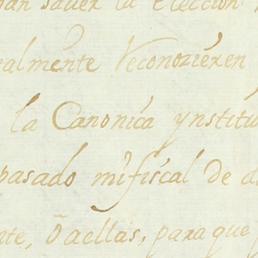 saver la eleccion
ealmente reconozieren
la Canonica ynstitu
pasado mi fiscal de
nte, ō aellas, para que